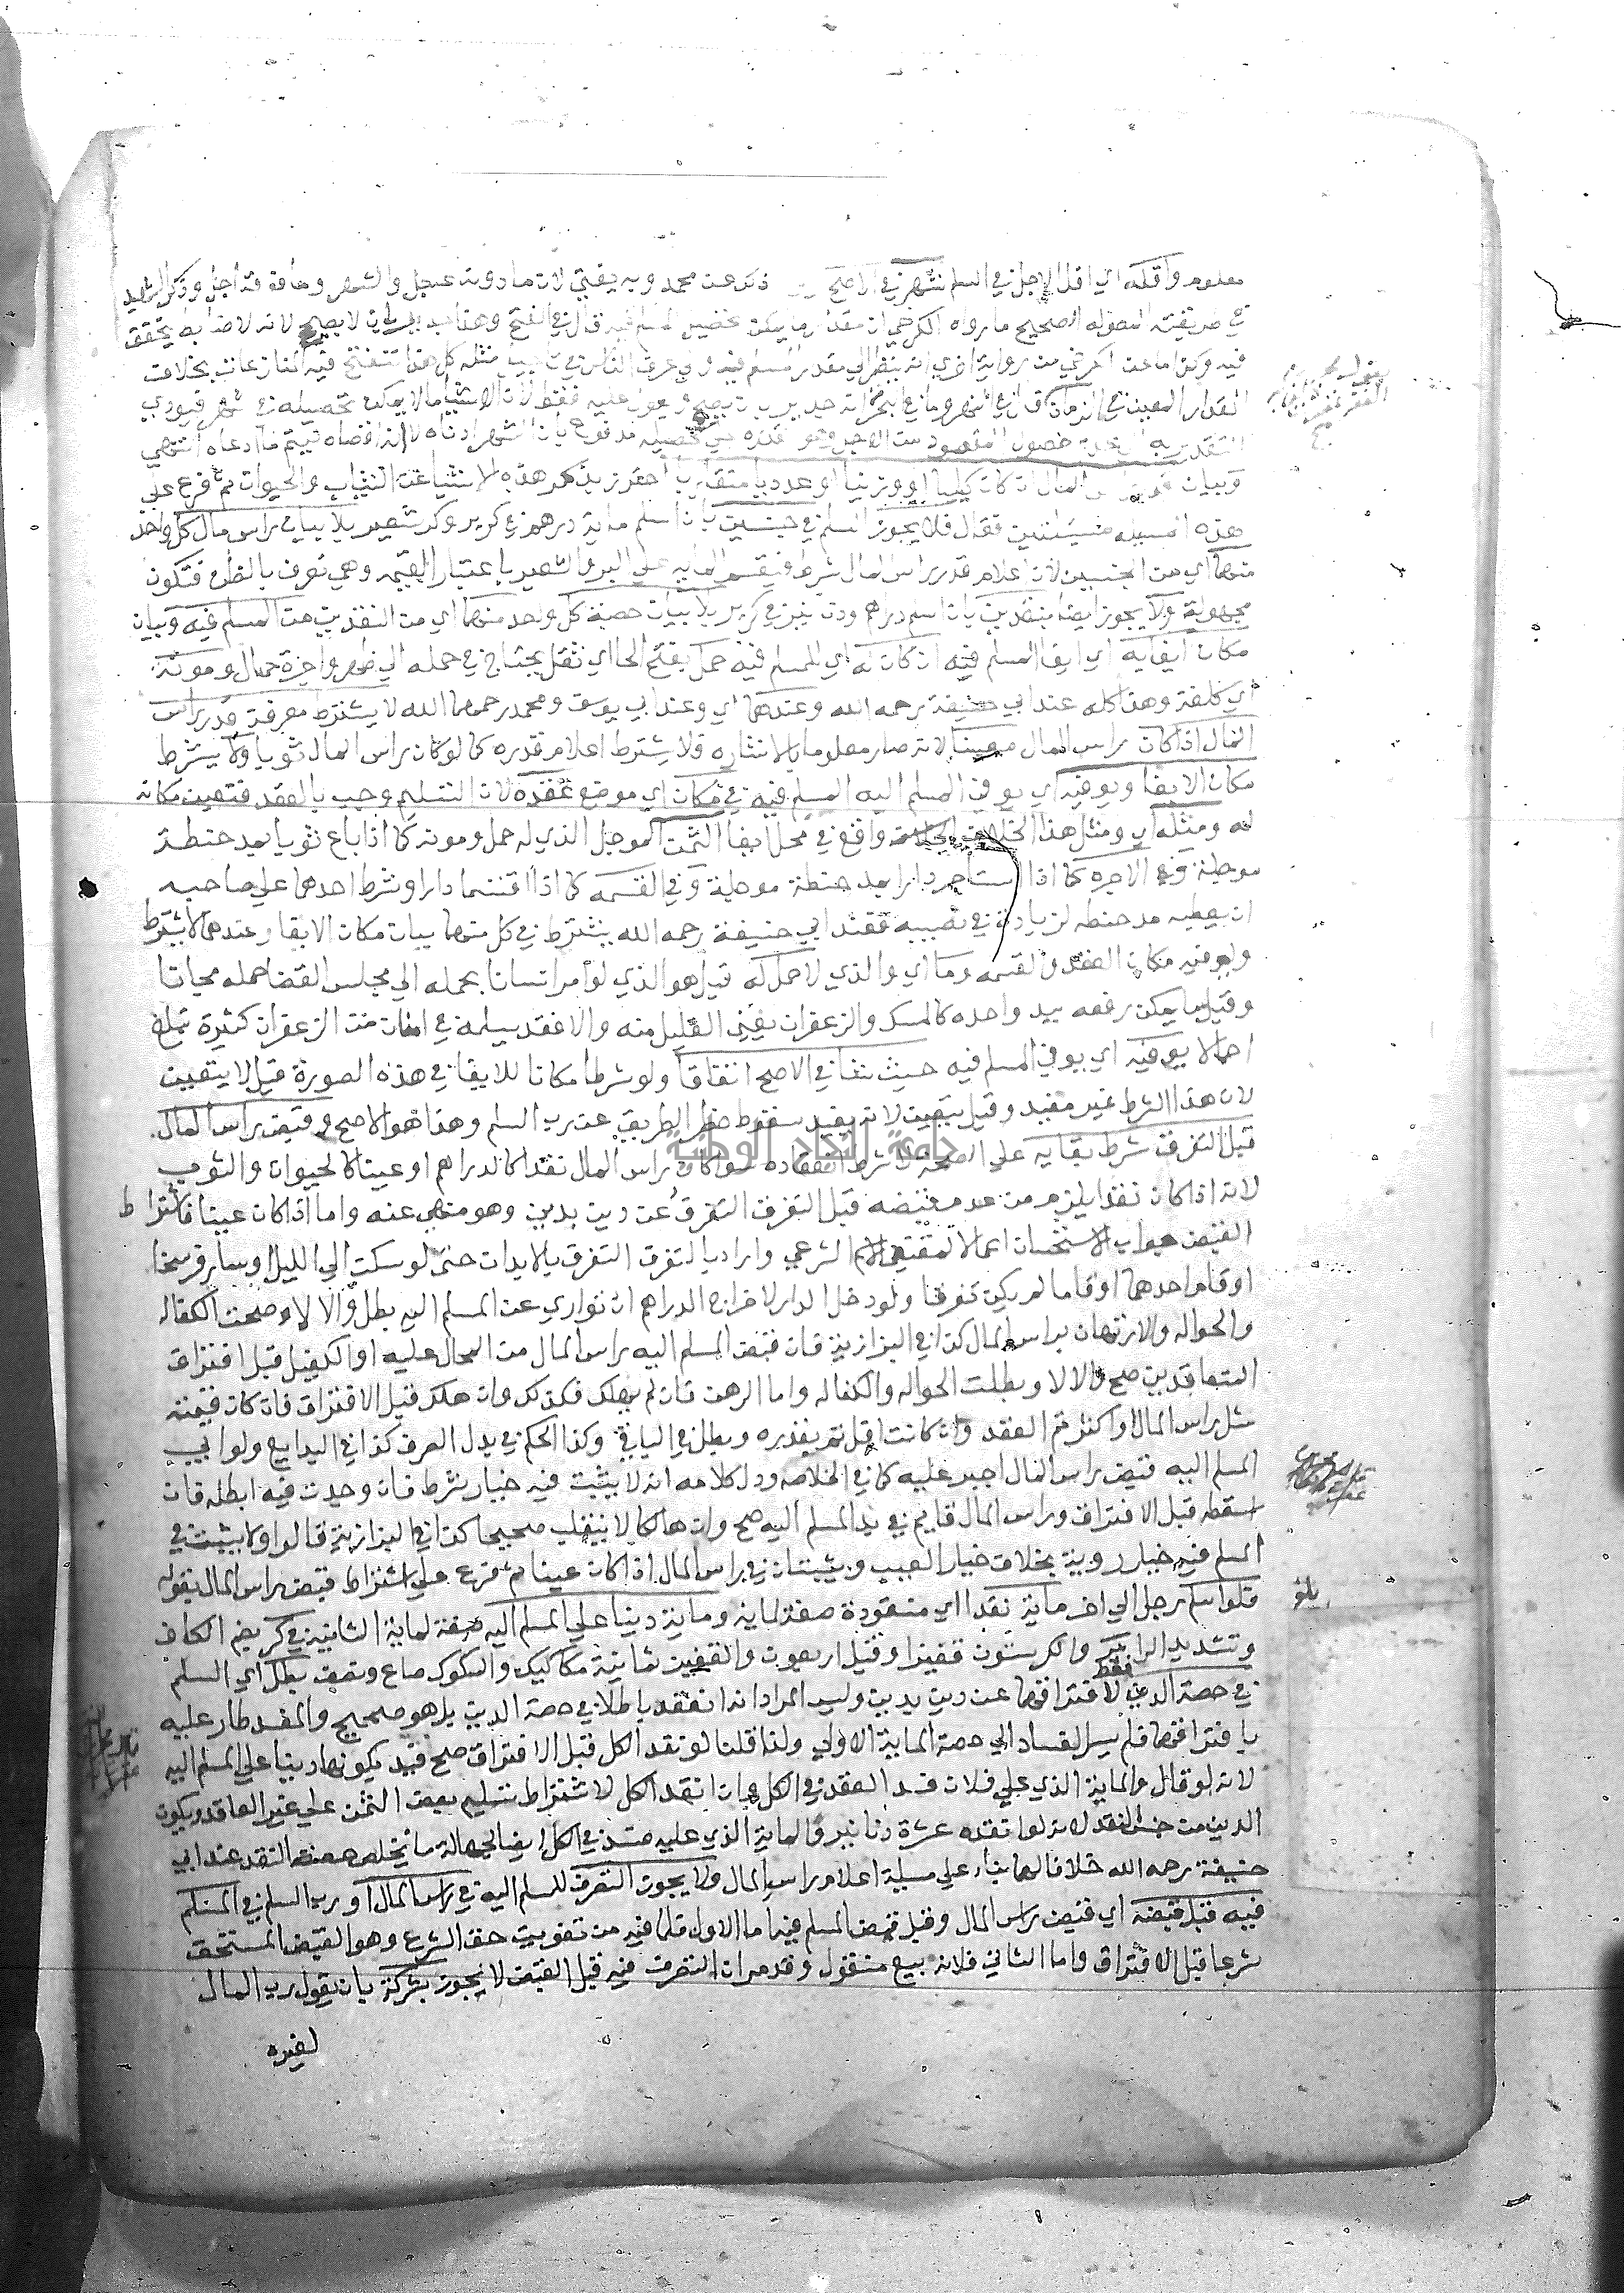 معلوم واقله اي اقل الاجل في السلم شهر في الاصح ذكر عن محمد وبه يفتي لان ما دونه عاجل والشهر وما فوقه اجل وذكر الشهيد
في طريقته المطوله الصحيح ما رواه الكرخي انه مقدار ما يمكن تحصيل المسلم فيه قال في الفتح وهذا جدير بان لا يصح لانه لا ضابط يتحقق
فيه وكذا ما عن الكرخي من رواية اخري انه ينظر الي مقدار المسلم فيه والي عرف الناس في تاجيل مثله كل هذا تنفتح فيه المنازعات بخلاف
المقدار المعين من الزمان قال في النهر وما في البحر انه جدير بان يصح ويعول عليه فقط لان من الاشيا ما لا يمكن تحصيله في شهر فيودي
التقدير به الي عدم حصول المقصود من الاجل وهو القدره علي تحصيله مدفوع بان الشهر ادناه لا انه اقصاه ليتم ما ادعاه انتهي
وبيان قدر راس المال ان كان كيليا او وزنيا او عدديا متقاربا احترز بذكر هذه الاشيا عن الثياب والحيوان ثم فرع علي
هذه المسيله مسيلتين فقال فلا يجوز السلم في جنسين بان اسلم ماية درهم في كر بر وكر شعير بلا بيان راس مال كل واحد
منهما اي من الجنسين لان اعلام قدر راس المال شرط فينقسم المايه علي البر والشعير باعتبار القيمه وهي تعرف بالظن فتكون
مجهولة ولا يجوز ايضا بنقدين بان اسلم دراهم ودنانير في كر بر بلا بيان حصة كل واحد منهما اي من النقدين من المسلم فيه وبيان
مكان ايفايه اي ايفا المسلم فيه ان كان له اي للمسلم فيه حمل بفتح الحا اي ثقل يحتاج في حمله الي ظهر واجرة حمال ومونة
اي كلفة وهذا كله عند ابي حنيفة رحمه الله وعندهما اي وعند ابي يوسف ومحمد رحمهما الله لا يشترط معرفة قدر راس
المال اذا كان راس المال معينا لانه صار معلوما بالاشاره فلا يشترط اعلام قدره كما لو كان راس المال ثوبا ولا يشترط
مكان الايفا ويوفيه اي يوفي المسلم اليه المسلم فيه في مكان اي موضع عقده لان التسليم وجب بالعقد فتعين مكانه
له ومثله اي ومثل هذا الخلاف واقع في محل ايفا الثمن الموجل الذي له حمل ومونه كما اذا باع ثوبا بمد حنطة
موجلة وفي الاجره كما اذا استاجر دارا بمد حنطة موجلة وفي القسمه كما اذا اقتسما دارا وشرط احدهما علي صاحبه
ان يعطيه مد حنطه لزيادة في نصيبه فعند ابي حنيفة رحمه الله يشترط في كل منهما بيان مكان الايفا وعندهما لا يشترط
ويوفيه مكان العقد والقسمه وما اي والذي لا حمل له قيل هو الذي لو امر انسانا بحمله الي مجلس القضا حمله مجانا
وقيل ما يمكن رفعه بيد واحده كالمسك والزعفران يعني القليل منه والا فقد يسلم في امنان من الزعفران كثيرة تبلغ
احمالا يوفيه اي يوفي المسلم فيه حيث شا في الاصح اتفاقا ولو شرطا مكانا للايفا في هذه الصورة قيل لا يتعين
لان هذا الشرط غير مفيد وقيل يتعين لانه يفيد سقوط خطر الطريق عن رب السلم وهذا هو الاصح وقبض راس المال
قبل التفرق شرط بقايه علي الصحة لا شرط انعقاده سوا كان راس المال نقدا كالدراهم او عينا كالحيوان والثوب
لانه اذا كان نقدا يلزم من عدم قبضه قبل التفرق التفرق عن دين بدين وهو منهي عنه واما اذا كان عينا فاشتراط
القبض جواب الاستحسان اعمالا لمقتضي الاسم الشرعي واراد بالتفرق التفرق بالابدان حتي لو سكت الي الليل او سار فرسخا
او قام احدهما او قاما لم يكن تفرقا ولو دخل الدار لاخراج الدراهم ان تواري عن المسلم اليه بطل والا لا وصحت الكفاله
والحواله والارتهان براس المال كذا في البزازية فان قبض المسلم اليه راس المال من المحال عليه او الكفيل قبل افتراق
المتعاقدين صح والا لا وبطلت الحواله والكفاله واما الرهن فان لم يهلك فكذلك وان هلك قبل الافتراق فان كان قيمته
مثل راس المال او اكثر تم العقد وان كانت اقل تم بقدره وبطل في الباقي وكذا الحكم في بدل الصرف كذا في البدايع ولو ابي
المسلم اليه قبض راس المال اجبر عليه كما في الخلاصه ودل كلامه انه لا يثبت فيه خيار شرط فان وجدت فيه ابطله فان
اسقطه قبل الافتراق وراس المال قايم في يد المسلم اليه صح وان هالكا لا ينقلب صحيحا كذا في البزازية قالوا ولا يثبت في
المسلم فيه خيار روية بخلاف خيار العيب ويثبتان في راس المال اذا كان عينا ثم فرع علي اشتراط قبض راس المال بقوله
فلو اسلم رجل الي اخر ماية نقدا اي منقودة صفة لماية وماية دينا علي المسلم اليه صفة لماية الثانية في كر بضم الكاف
وتشديد الرا بر والكر ستون قفيزا وقيل اربعون والقفيز ثمانية مكاكيك والمكوك صاع ونصف بطل اي السلم
في حصة الدين فقط لافتراقهما عن دين بدين وليس المراد انه انعقد باطلا في حصة الدين بل هو صحيح والمفسد طار عليه
بافتراقهما فلم يسر الفساد الي حصة الماية الاولي ولذا قلنا لو نقد الكل قبل الافتراق صح قيد بكونها دينا علي المسلم اليه
لانه لو قال والماية الذي علي فلان فسد العقد في الكل وان نقد الكل لاشتراط تسليم بعض الثمن علي غير العاقد وبكون
الدين من جنس النقد لانه لو نقده عشرة دنانير والماية الذي عليه فسد في الكل ايضا لجهالة ما يخلص النقد عند ابي
حنيفة رحمه الله خلافا لهما بناء علي مسيلة اعلام راس المال ولا يجوز التصرف للمسلم اليه في راس المال او رب السلم في المسلم
فيه قبل قبضه اي قبض راس المال وقبل قبض المسلم فيه اما الاول فلما فيه من تفويت حق الشرع وهو القبض المستحق
شرعا قبل الافتراق واما الثاني فلانه بيع منقول وقد مر ان التصرف فيه قبل القبض لا يجوز بشركة بان يقول رب المال
لغيره